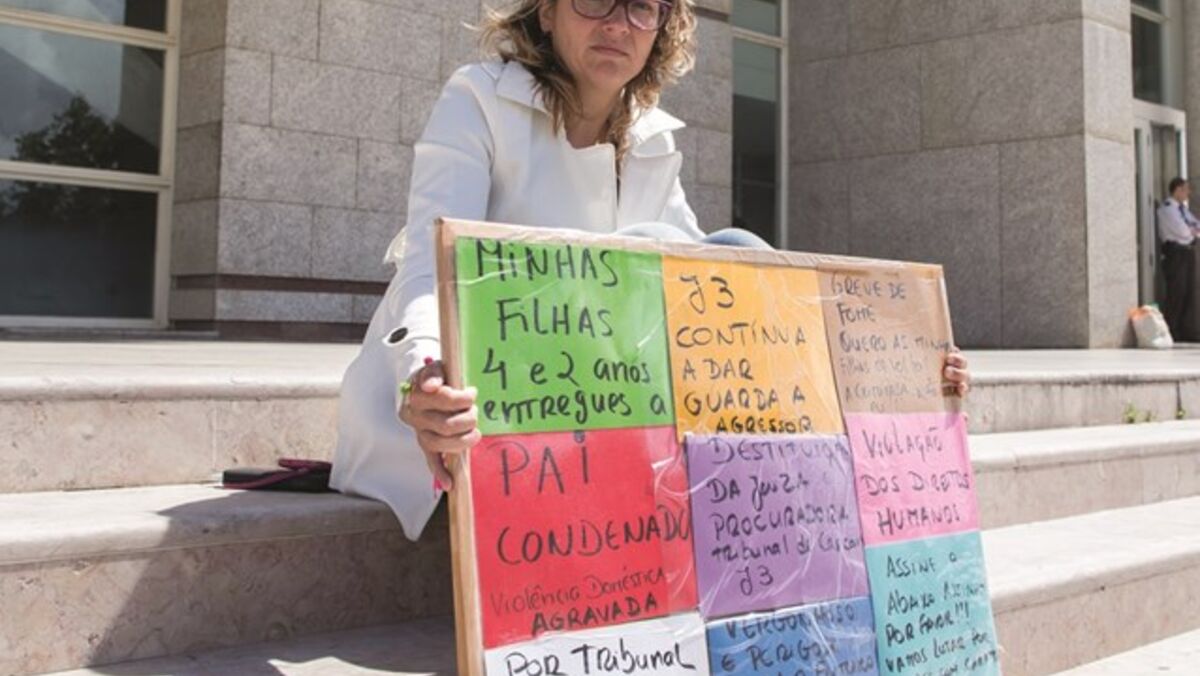 MINHAS
FILHAS
4 e 2 anos
entregues a
PAI
CONDENADO
Violência Doméstica
AGRAVADA
POR TRIBUNAL
J3
CONTÍNUA
A DAR
GUARDA A
AGRESSOR
DESTITUIÇÃO
DA JUIZA
PROCURADORA
Tribunal de Cascais
J3
VERGONHOSO
E PERIGOSO
GREVE DE
FOME
QUERO AS MINHAS
FILHAS DE VOLTA
VIOLAÇÃO
DOS DIREITOS
HUMANOS
ASSINE O
ABAIXO ASSINADO
POR FAVOR!!!
VAMOS LUTAR